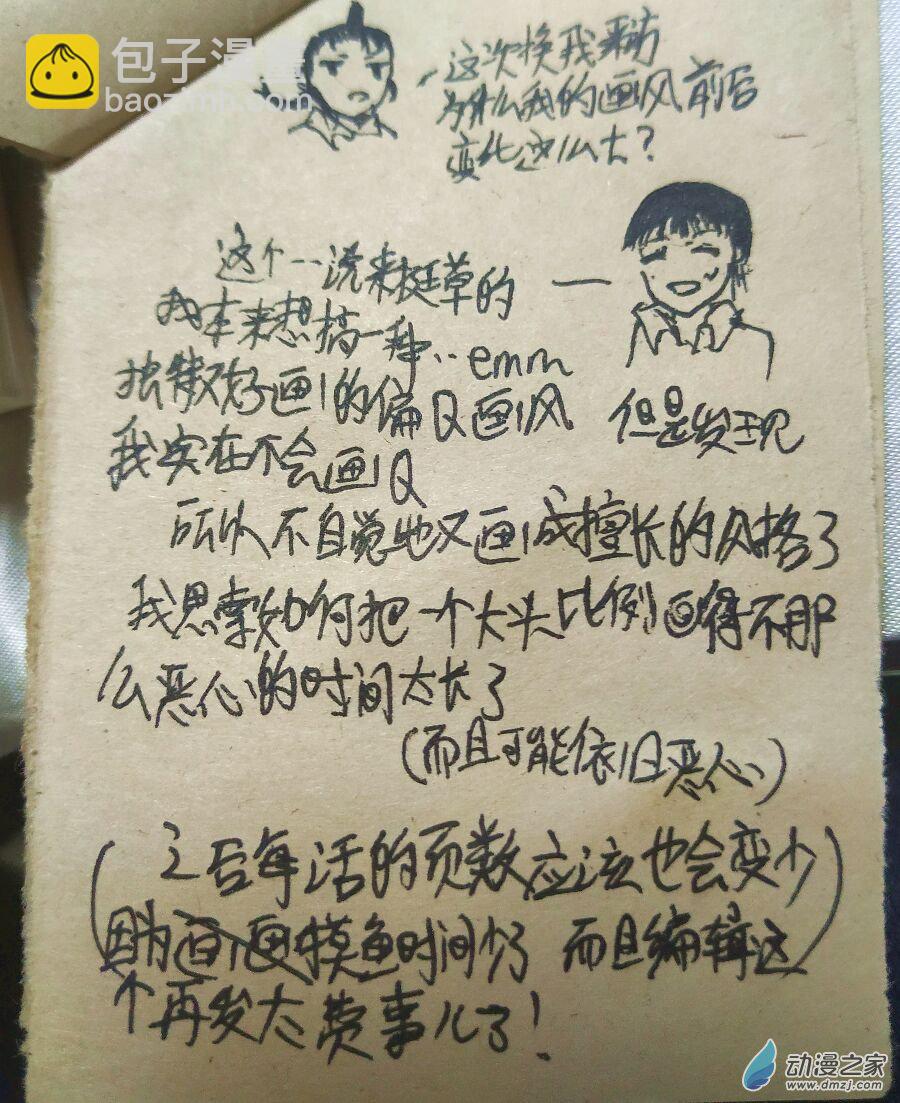 包子漫畫
baozimh.com
这次换我来访
为什么我的画风前后
变化这么大？
这个…说来挺草的
我本来想搞一种…emm
独特又好画的偏Q画风
但是发现
我实在不会画Q
所以不自觉地又画成擅长的风格了
我思索如何把一个大头比例画得不那
么恶心的时间太长了
（而且可能依旧恶心）
（之后每话的页数应该也会变少
因为画画摸鱼时间少了 而且编辑这）
个再发太费事儿了！
动漫之家
www.dmzj.com